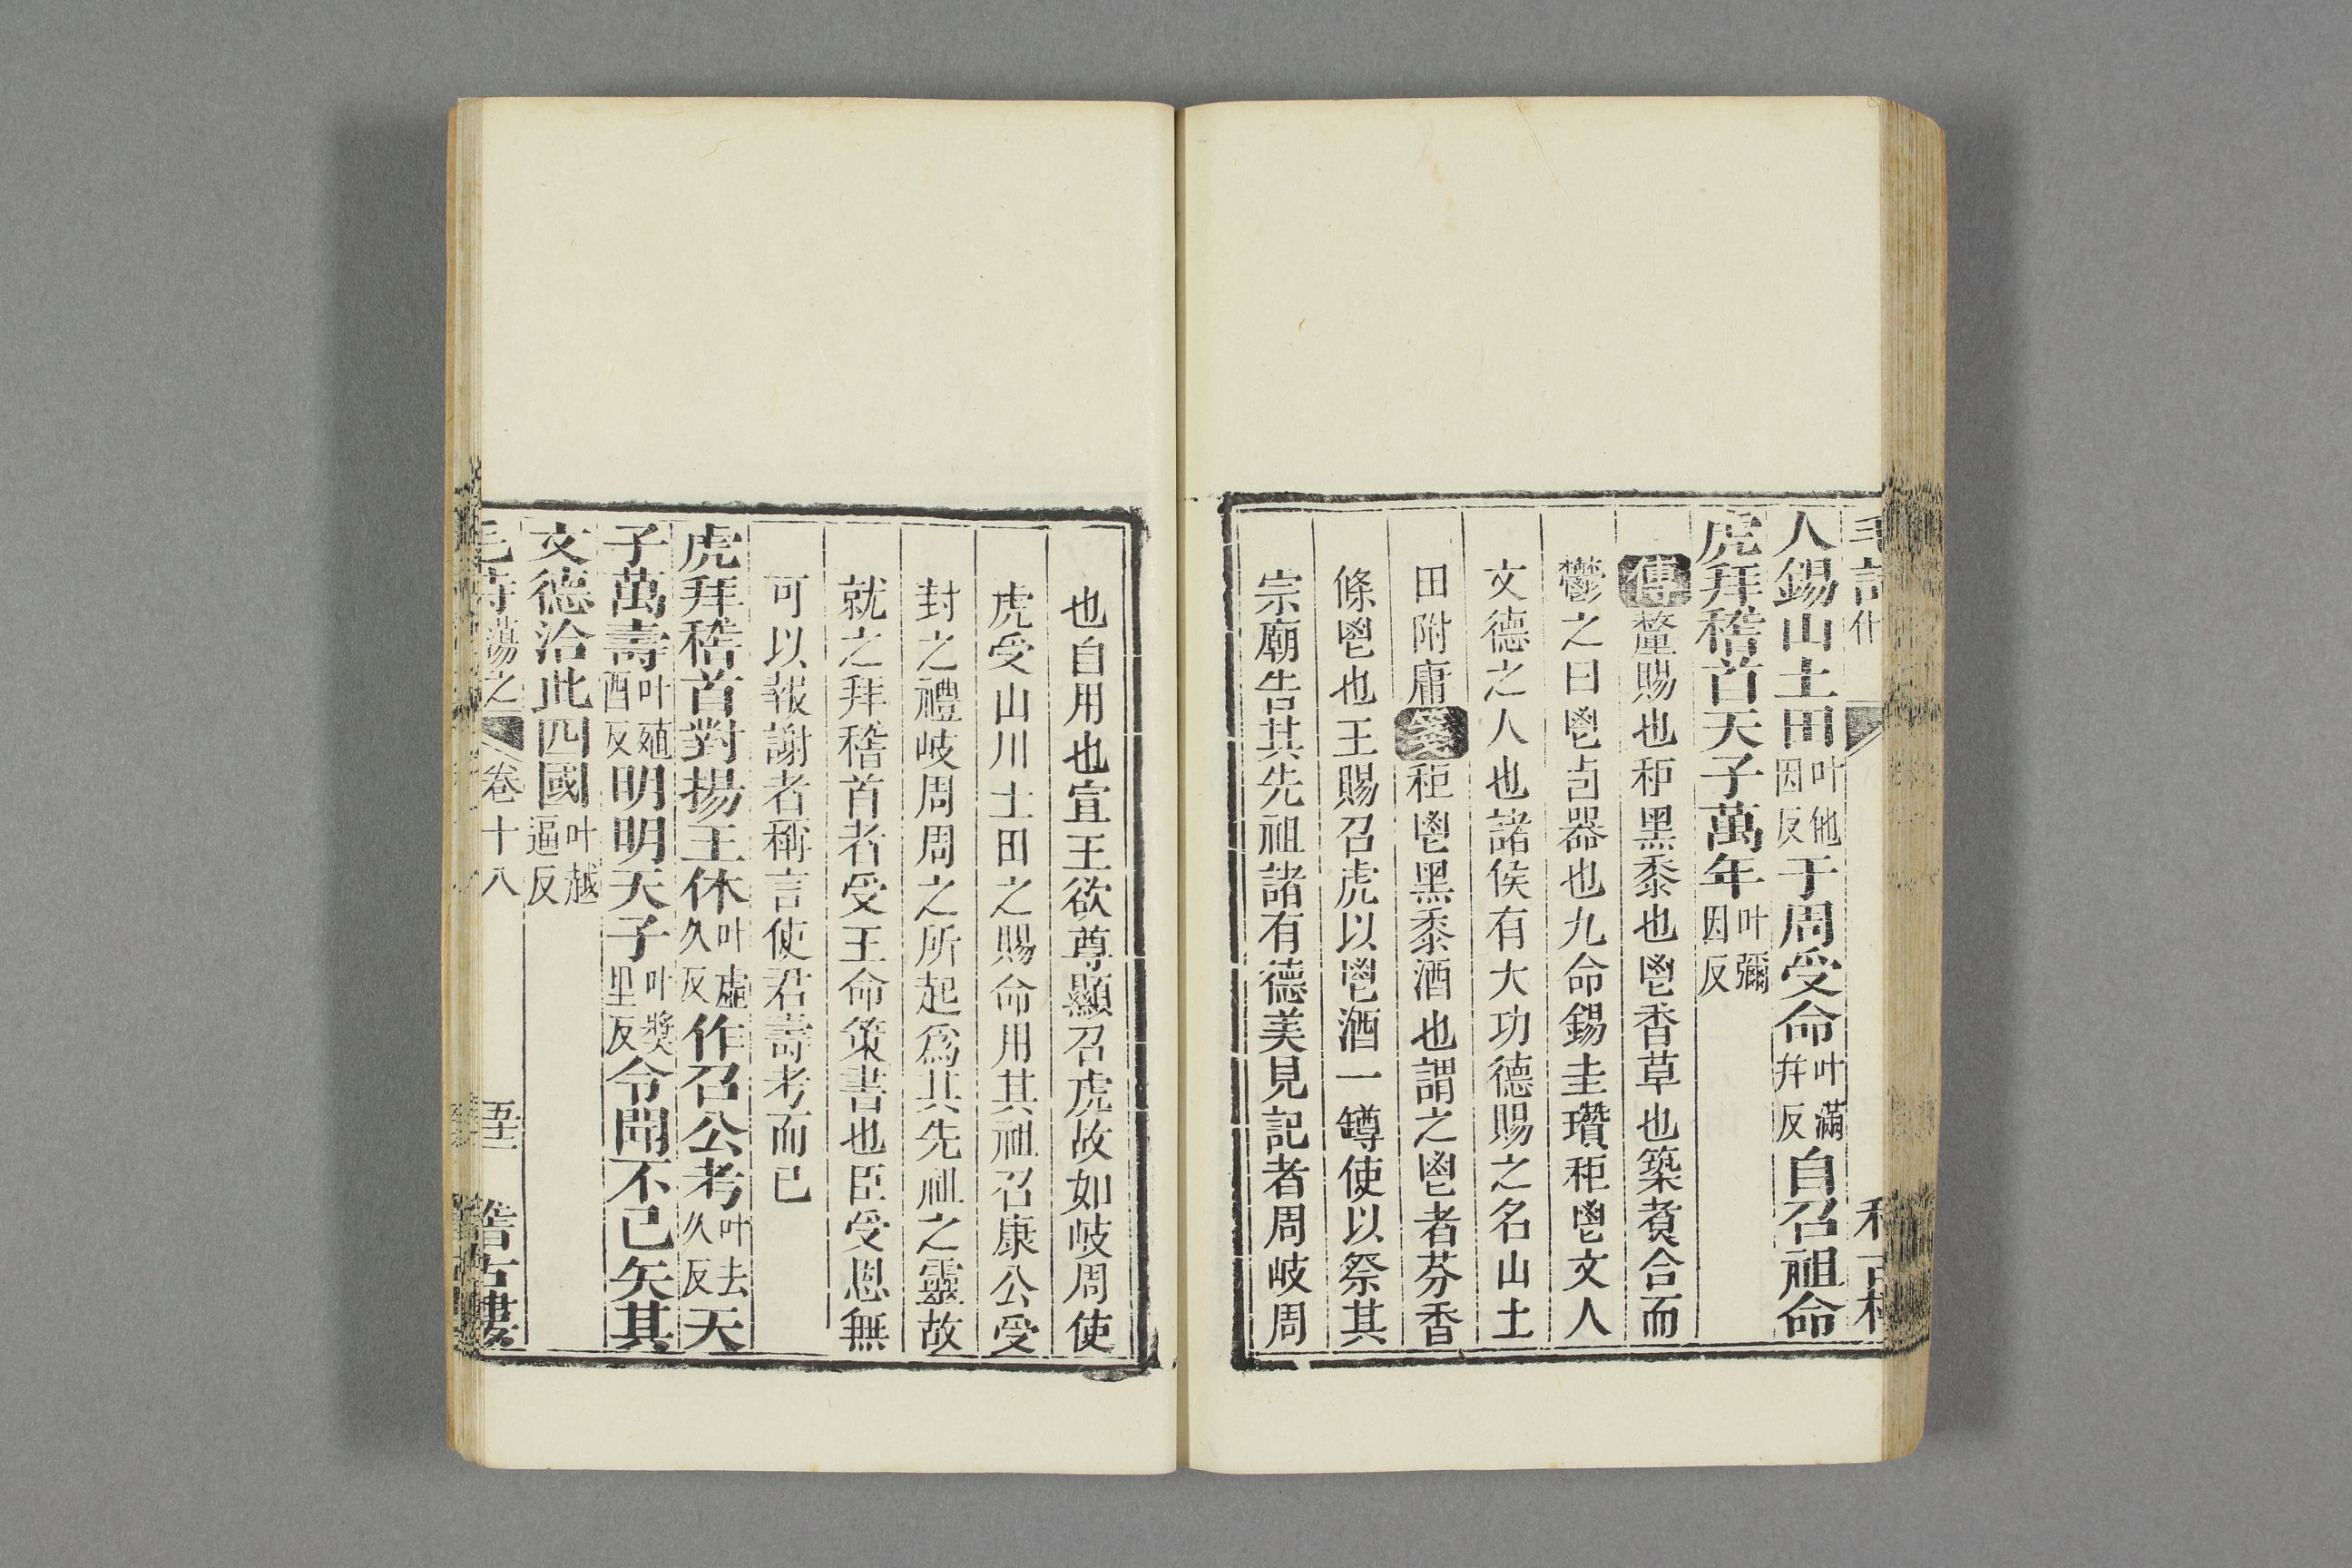 人錫山土田叶他因反于周受命叶滿幷反自召祖命
虎拜稽首天子萬年叶彌因反
傳釐賜也秬黑黍也鬯香草也築煑合而
鬱之曰鬯卣器也九命錫圭瓚秬鬯文人
文德之人也諸侯有大功德賜之名山土
田附庸箋秬鬯黑黍酒也謂之鬯者芬香
條鬯也王賜召虎以鬯酒一罇使以祭其
宗廟告其先祖諸有德美見記者周岐周
也自用也宣王欲尊顯召虎故如岐周使
虎受山川土田之賜命用其祖召康公受
封之禮岐周周之所起爲其先祖之靈故
就之拜稽首者受王命策書也臣受恩無
可以報謝者稱言使君壽考而已
虎拜稽首對揚王休叶虛久反作召公考叶去久反天
子萬壽叶殖酉反明明天子叶奬里反令聞不已矢其
文德洽此四國叶越逼反
毛詩蕩之 卷十八 稽古樓